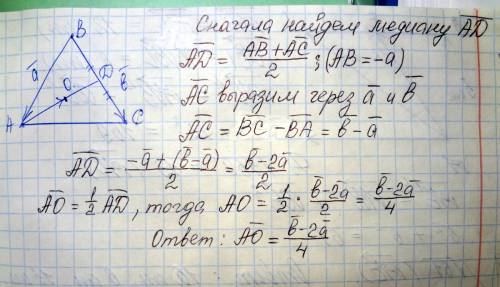 Сначала найдем медиану A̅D̅
A̅D̅ = (A̅B̅ + A̅C̅)/2 ; (AB = -a)
A̅C̅ выразим через a̅ и b̅
A̅C̅ = B̅C̅ - B̅A̅ = b̅ - a̅
A̅D̅ = (-a̅ + (b̅ - a̅))/2 = (b̅ - 2a̅)/2
A̅O̅ = 1/2 A̅D̅, тогда AO = 1/2 · (b̅ - 2a)/2 = (b̅ - 2a̅)/4
Ответ: A̅O̅ = (b̅ - 2a̅)/4
B
a̅
D
b̅
O
A
C